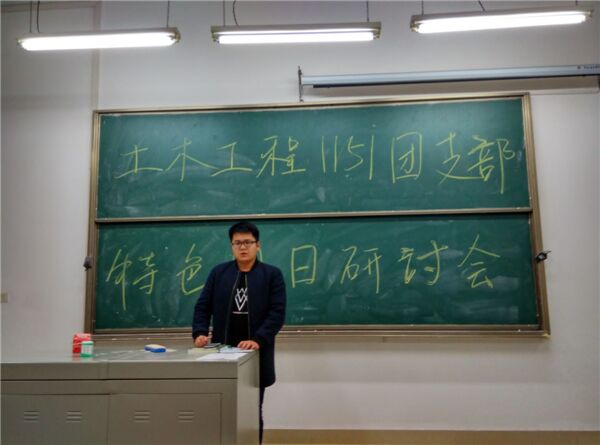 土木工程1151团支部
特色 日研讨会